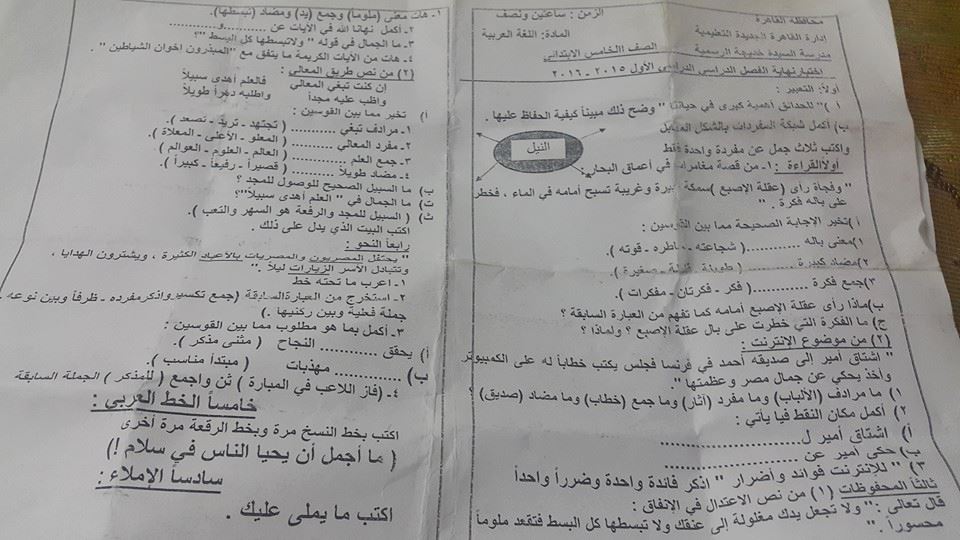 محافظة القاهرة
الزمن : ساعتين ونصف
إدارة القاهرة الجديدة التعليمية
المادة: اللغة العربية
مدرسة السيدة خديجة الرسمية
الصف الخامس الابتدائي
اختبار نهاية الفصل الدراسي الأول ٢٠١٥ - ٢٠١٦
أولاً: التعبير :
أ ) " للحدائق أهمية كبرى في حياتنا " وضح ذلك مبيناً كيفية الحفاظ عليها .
ب) أكمل شبكة المفردات بالشكل المقابل
النيل
واكتب ثلاث جمل عن مفردة واحدة فقط
أولاً القراءة : ١- من قصة مغامرات في أعماق البحار
" وفجأة رأى (عقلة الإصبع) سمكة كبيرة وغريبة تسبح أمامه في الماء ، فخطر
على باله فكرة . "
أ) تخير الإجابة الصحيحة مما بين القوسين :
١) معنى باله ............ ( شجاعته - خاطره - قوته ).
٢) مضاد كبيرة ............ ( طويلة - قليلة - صغيرة ).
٣) جمع فكرة ............ ( فكر - فكرتان - مفكرات ).
ب) ماذا رأى عقلة الإصبع أمامه كما تفهم من العبارة السابقة ؟
ج) ما الفكرة التي خطرت على بال عقلة الإصبع ؟ ولماذا ؟
(٢) من موضوع الإنترنت :
" اشتاق أمير إلى صديقه أحمد في فرنسا فجلس يكتب خطاباً له على الكمبيوتر
وأخذ يحكي عن جمال مصر وعظمتها "
١) ما مرادف (الألباب) وما مفرد (آثار) وما جمع (خطاب) وما مضاد (صديق) ؟
٢) أكمل مكان النقط فيا يأتي :
أ) اشتاق أمير ل ..................
ب) حكى أمير عن ..................
٣) " للإنترنت فوائد وأضرار " اذكر فائدة واحدة وضرراً واحداً
ثالثاً المحفوظات (١) من نص الاعتدال في الإنفاق :
قال تعالى : " ولا تجعل يدك مغلولة إلى عنقك ولا تبسطها كل البسط فتقعد ملوماً
محسوراً . "
١- هات معنى (ملوماً) وجمع (يد) ومضاد (تبسطها).
٢- أكمل نهانا الله في الآيات عن ............و............
٣- ما الجمال في قوله " ولاتبسطها كل البسط "؟
٤- هات من الآيات الكريمة ما يتفق مع "المبذرون اخوان الشياطين" .
(٢) من نص طريق المعالي :
إن كنت تبغي المعالي
فالعلم أهدى سبيلاً
واظب عليه مجداً
واطلبه دهراً طويلاً
أ) تخير مما بين القوسين :
١- مرادف تبغي ............ ( تجتهد - تريد - تصعد ).
٢- مفرد المعالي ............ ( المعلو - الأعلى - المعلاة ).
٣- جمع العلم ............ ( العالم - العلوم - العوالم ).
٤- مضاد طويلاً ............ ( قصيراً - رفيعاً - كبيراً ).
ب) ما السبيل الصحيح للوصول للمجد ؟
ت) ما الجمال في " العلم أهدى سبيلاً"؟
ث) ( السبيل للمجد والرفعة هو السهر والتعب ).
اكتب البيت الذي يدل على ذلك .
رابعاً النحو :
" يحتفل المصريون والمصريات بالأعياد الكثيرة ، ويشترون الهدايا ،
وتتبادل الأسر الزيارات ليلاً . "
١- اعرب ما تحته خط
٢- استخرج من العبارة السابقة (جمع تكسير واذكر مفرده - ظرفاً وبين نوعه -
جملة فعلية وبين ركنيها .)
٣- أكمل بما هو مطلوب مما بين القوسين :
أ) يحقق ............ النجاح ( مثنى مذكر ).
ب) ............ مهذبات ( مبتدأ مناسب ).
٤- (فاز اللاعب في المباراة ) ثن واجمع ( للمذكر ) الجملة السابقة
خامساً الخط العربي :
اكتب بخط النسخ مرة وبخط الرقعة مرة أخرى
( ما أجمل أن يحيا الناس في سلام !)
سادساً الإملاء :
اكتب ما يملى عليك .